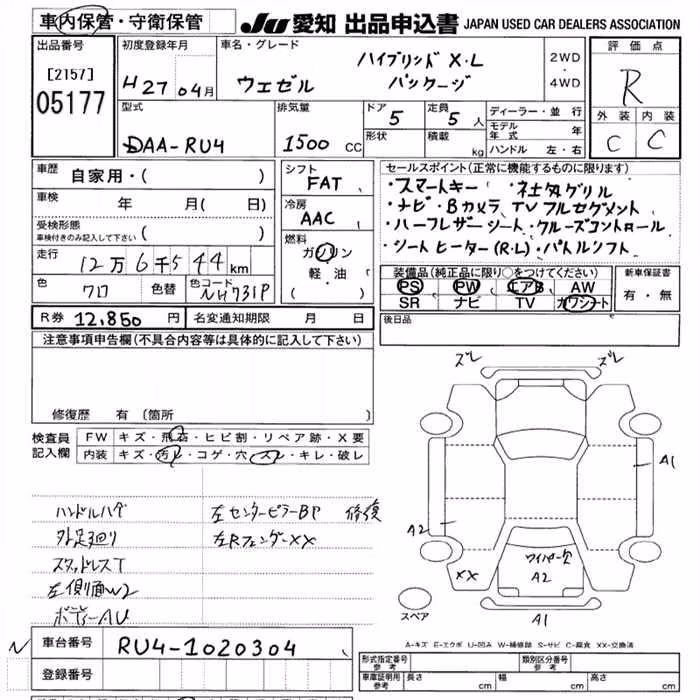 車内保管・守衛保管
JU 愛知 出品申込書 JAPAN USED CAR DEALERS ASSOCIATION
出品番号
[2157]
05177
初度登録年月
H 27年 04月
車名・グレード
ウェゼル ハイブリッド X・L
パッケージ
2WD
・
4WD
評価点
R
外装 内装
C C
型式
DAA-RU4
排気量
1500 CC
ドア 5
形状
定員 5 人
積載 kg
ディーラー・並行
モデル年式 年
ハンドル 左・右
車歴
自家用・( )
車検 年 月(日)
受検形態
車検付きのみ記入して下さい ( )
走行
12万6千544km
色 クロ 色替 色コード NH731P
シフト
FAT
冷房
AAC
燃料
ガソリン
軽・油
( )
セールスポイント(正常に機能するものに限ります)
・スマートキー ・社外グリル
・ナビ・Bカメラ、TVフルセグメント
・ハーフレザーシート・クルーズコントロール
・シートヒーター(R・L)・パドルシフト
装備品(純正品に限り○をつけてください)
PS PW エアB AW
SR ナビ TV カワシート
新車保証書
有・無
後日品
R券 12,850円 名変通知期限 月 日
注意事項申告欄(不具合内容等は具体的に記入して下さい)
修復歴 有 (箇所
検査員
記入欄
FW キズ・飛石・ヒビ割・リペア跡・X要
内装 キズ・汚レ・コゲ・穴・スレ・キレ・破レ
ハンドルハゲ 左センターピラーBP 修復
外足廻り 左Rフェンダーxx
スタッドレスT
左側面W2
ボディーAU
ズレ ズレ
A1
A2
ワイパー穴
A2
XX
A1
スペア
A-キズ E-エクボ U-凹み W-補修跡 S-サビ C-腐食 XX-交換済
N
車台番号 RU4-1020304
登録番号
形式指定番号
参考
類別区分番号
参考
車庫証明用
参考
長さ cm 幅 cm 高さ cm